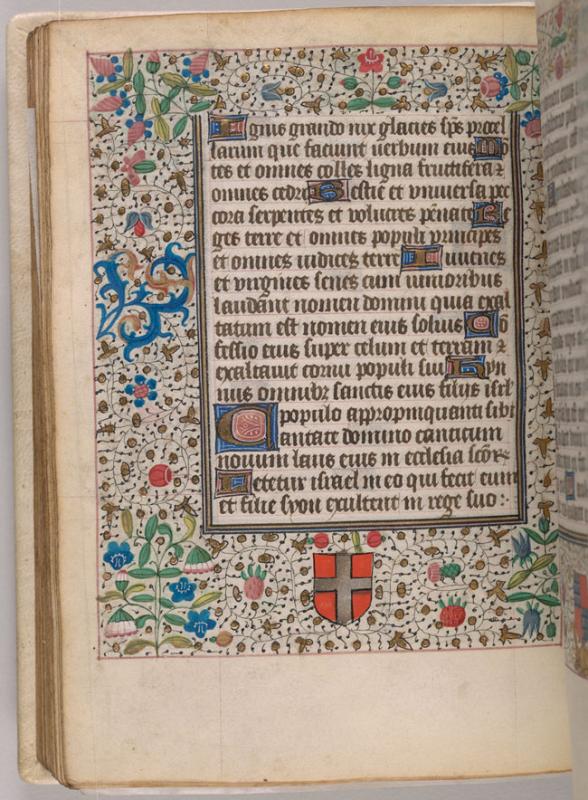 Ignis grando nix glacies sp̄s procel
larum que faciunt uerbum eius Mō
tes et omnes colles ligna fructifera ⁊
omnes cedri Bestie et vniuersa pe
cora serpentes et volucres pēnate Re
ges terre et omnes populi principes
et omnes iudices terre Iuuenes
et virgines senes cum iunioribus
laudānt nomen domini quia exal
tatum est nomen eius solius Cō
fessio eius super celum et terram ⁊
exaltauit cornu populi sui Hym
nus omnibꝫ sanctis eius filijs isrł
populo appropinquanti sibi
Cantate domino canticum
nouum laus eius in ecclesia scōꝝ
Letetur israel in eo qui fecit eum
et filie syon exultent in rege suo :·